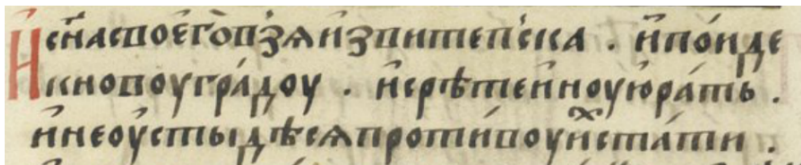 И сн҃а своего̀ в̾зѧ и҆з витеп̾ска . и҆ по́иде
к новоу гра́доу . и҆ срѣте и҆ноу́ю ра́ть .
и҆ не оу҆стыдѣсѧ проти́воу и҆ⷯ ста́ти .